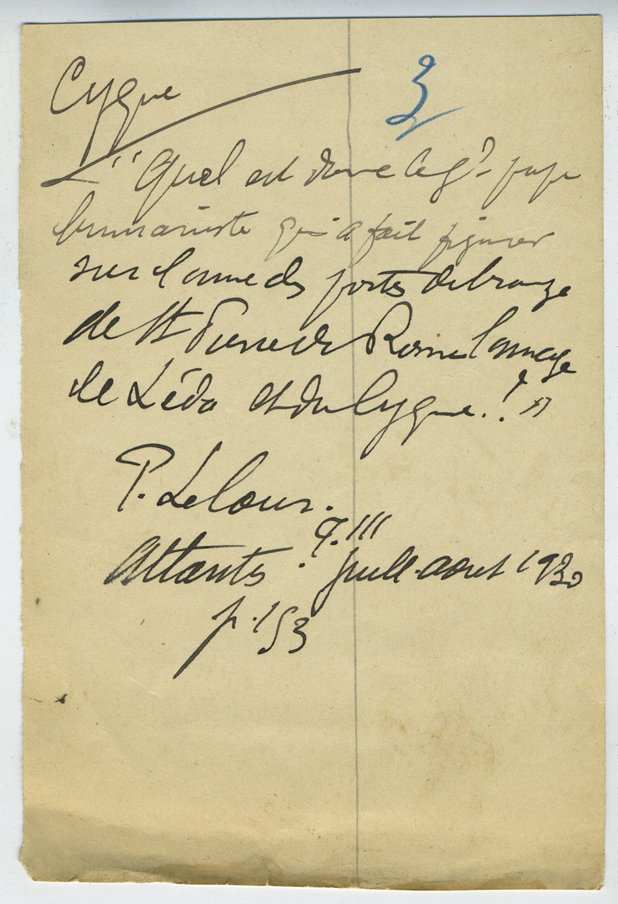 Cygne
3
" Quel est donc le gd pape
humaniste qui a fait figurer
sur l'une des portes de bronze
de St Pierre de Rome l'image
de Léda et du Cygne.! »
P. Lecour.
q. III
Atlantis. juill-aout 1930
p. 153